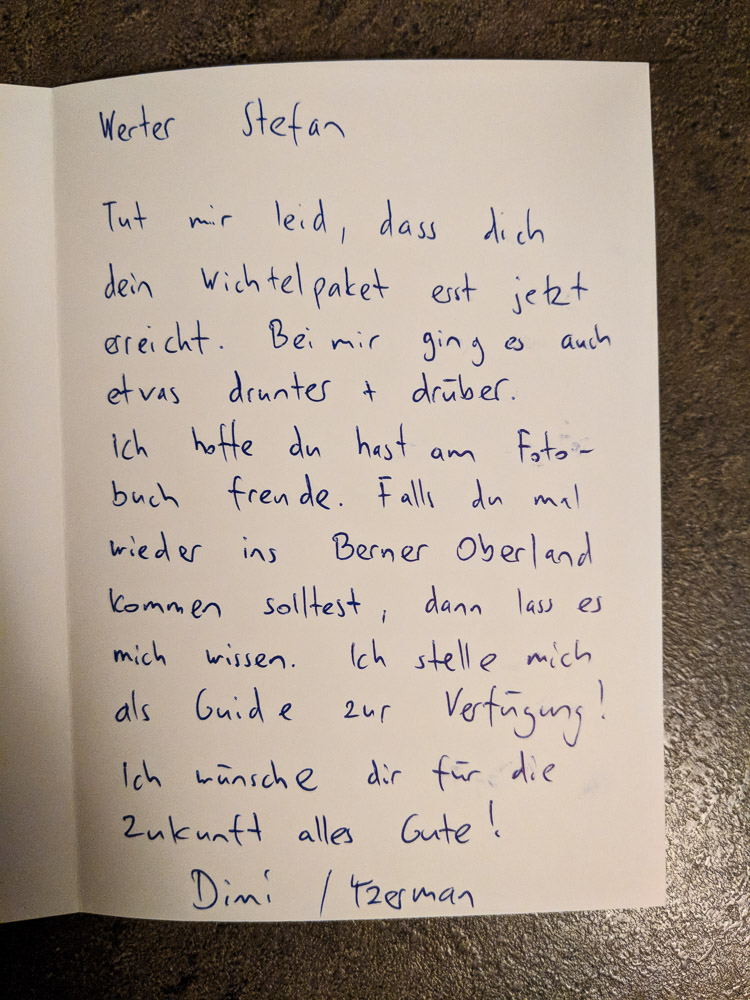 Werter Stefan
Tut mir leid, dass dich
dein Wichtelpaket erst jetzt
erreicht. Bei mir ging es auch
etwas drunter + drüber.
Ich hoffe du hast am Foto-
buch freude. Falls du mal
wieder ins Berner Oberland
kommen solltest, dann lass es
mich wissen. Ich stelle mich
als Guide zur Verfügung!
Ich wünsche dir für die
Zukunft alles Gute!
Dimi / tzerman